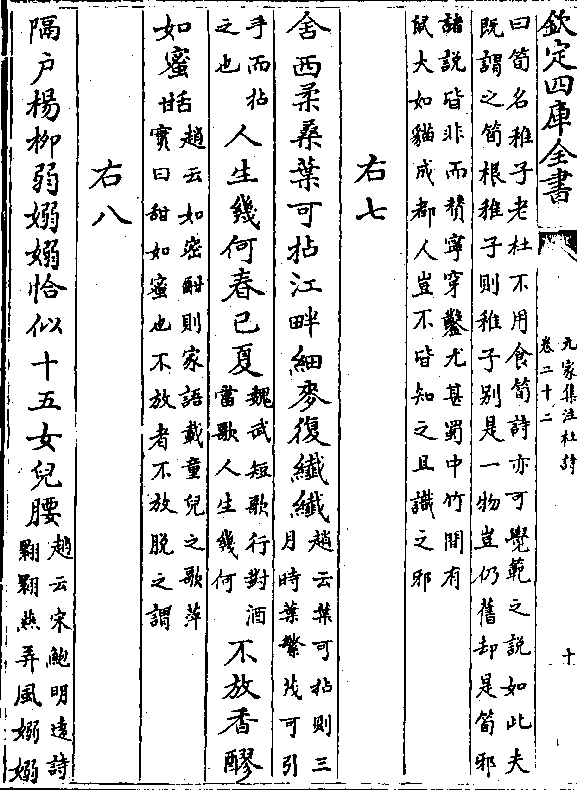 欽定四庫全書
九家集注杜詩
卷二十二
十
曰筍名稚子老杜不用食筍詩亦可覺範之說如此夫
既謂之筍根稚子則稚子別是一物豈仍舊却是筍邪
諸說皆非而贊寧穿鑿尤甚蜀中竹間有
鼠大如貓成都人豈不皆知之且識之邪
右七
舍西柔桑葉可拈江畔細麥復纖纖
趙云葉可拈則三
月時葉繁茂可引
手而拈
之也
人生幾何春已夏
魏武短歌行對酒
當歌人生幾何
不放香醪
如蜜甜
趙云如密酣則家語載童兒之歌萍
實曰甜如蜜也不放者不放脫之謂
右八
隔户楊柳弱嫋嫋恰似十五女兒腰
趙云宋鮑明遠詩
翾翾燕弄風嫋嫋